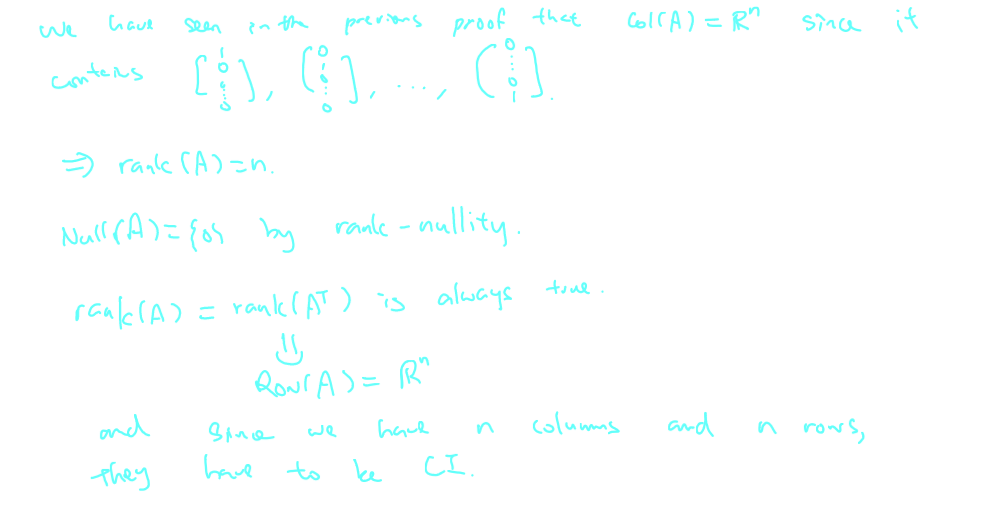 we have seen in the previous proof that Col(A) = ℝⁿ since it
contens [1 0 ⋮ 0], [0 1 0 ⋮ 0], ..., [0 ⋮ 0 1].
⇒ rank(A)=n.
Null(A)={0} by rank-nullity.
rank(A) = rank(Aᵀ) is always true.
⇓
Row(A) = ℝⁿ
and since we have n columns and n rows,
they have to be LI.